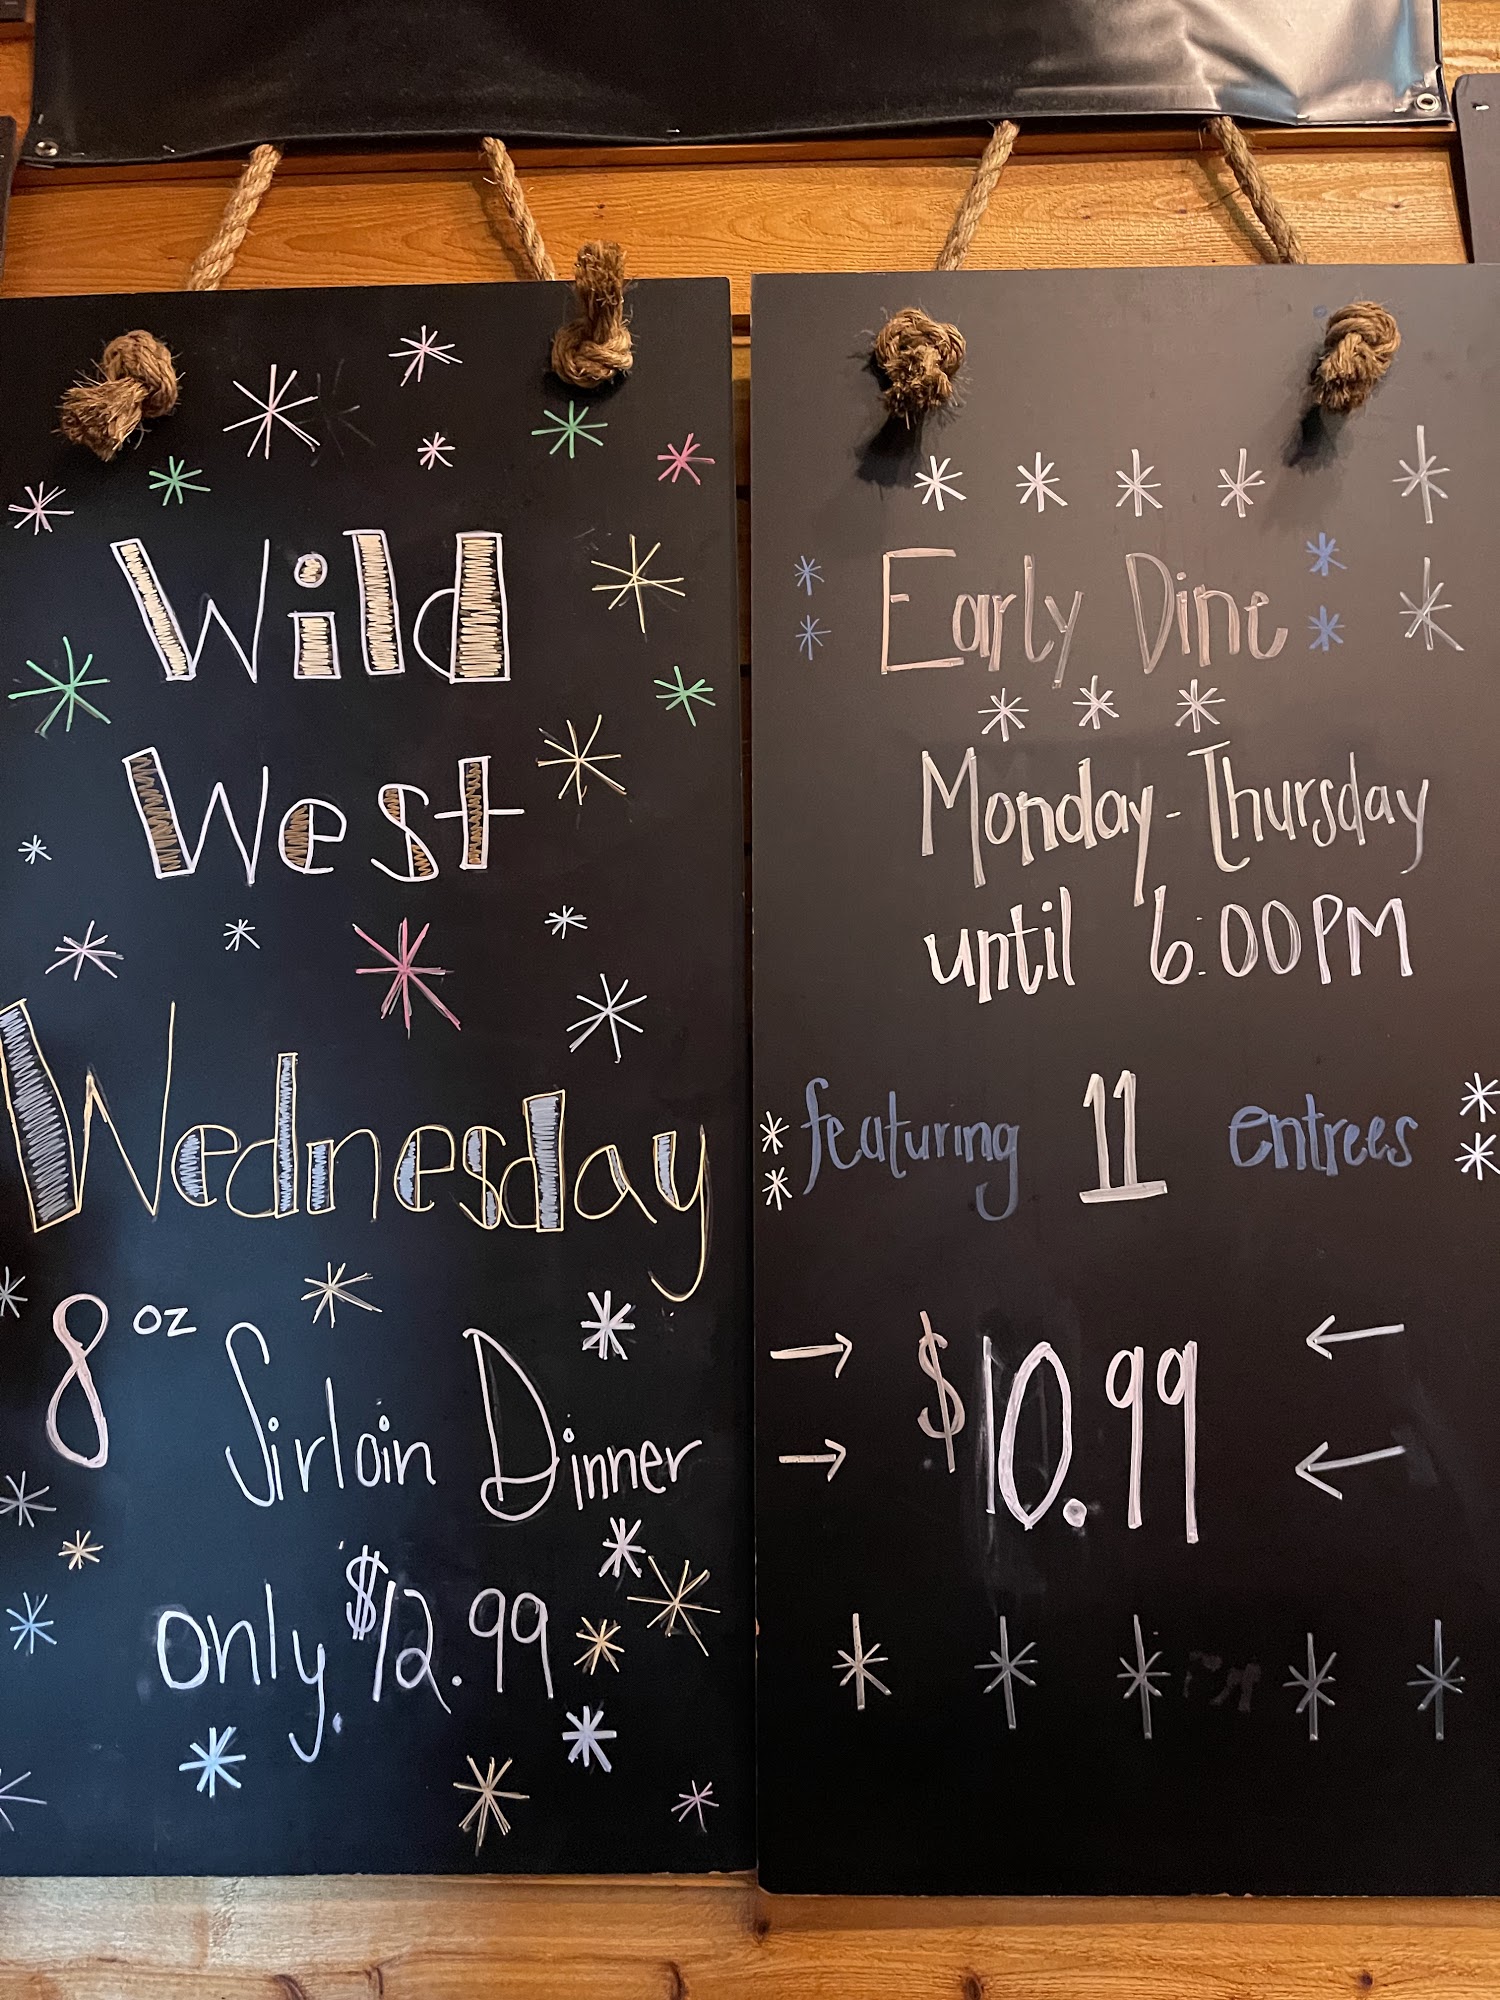 Wild
West
Wednesday
8 oz Sirloin Dinner
only $12.99
Early Dine
Monday-Thursday
until 6:00PM
featuring 11 entrees
$10.99